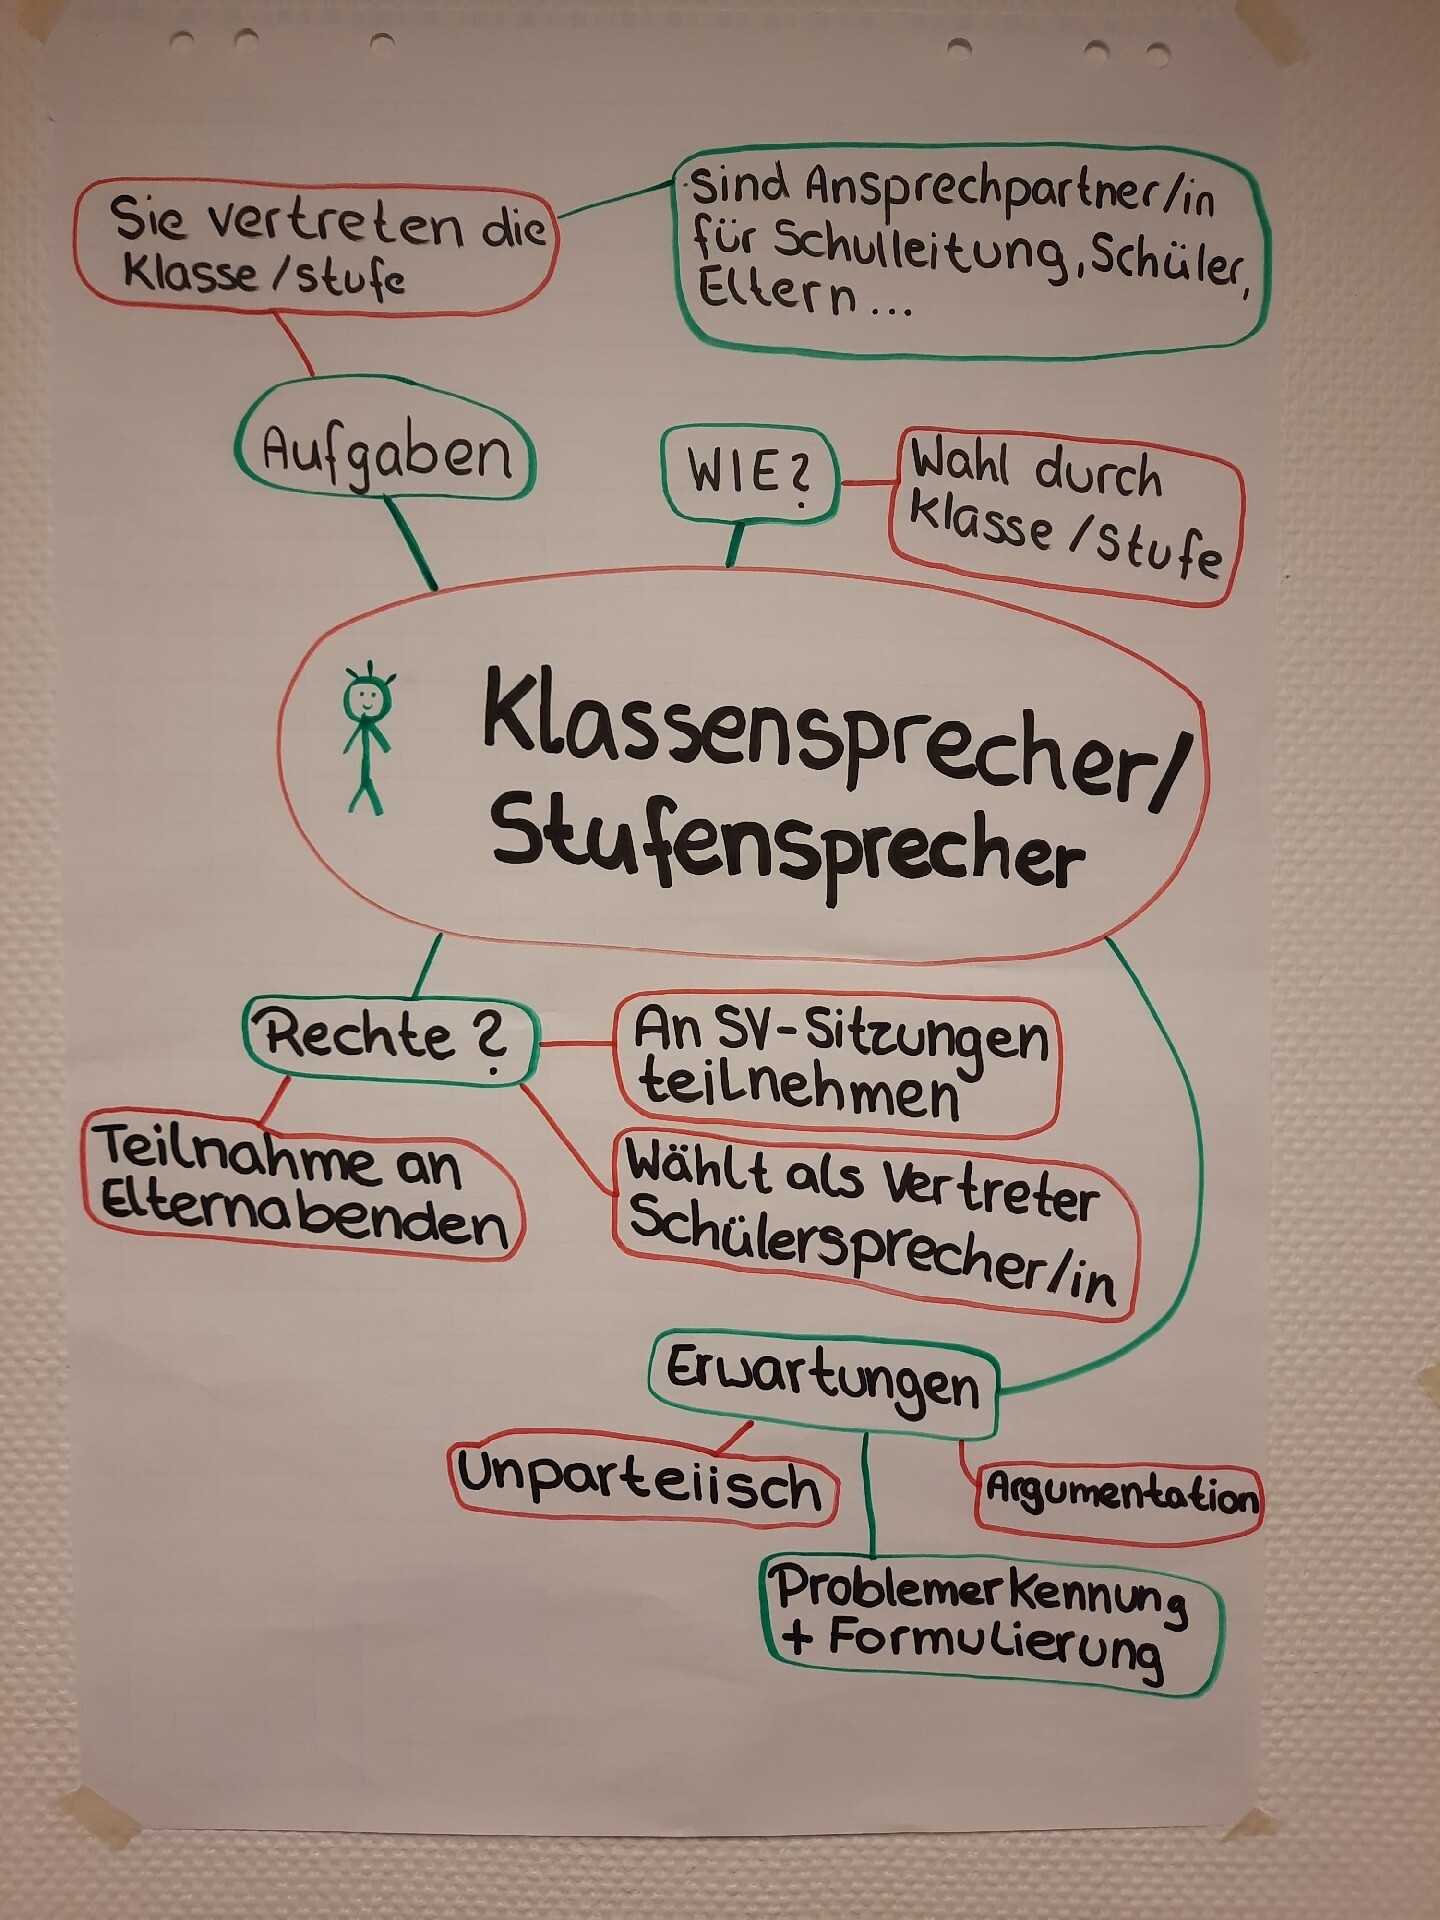 Sie vertreten die
Klasse/Stufe
sind Ansprechpartner/in
für Schulleitung, Schüler,
Eltern...
Aufgaben
WIE?
Wahl durch
Klasse/Stufe
Klassensprecher/
Stufensprecher
Rechte?
An SV-Sitzungen
teilnehmen
Teilnahme an
Elternabenden
Wählt als Vertreter
Schülersprecher/in
Erwartungen
Unparteiisch
Argumentation
Problemerkennung
+ Formulierung